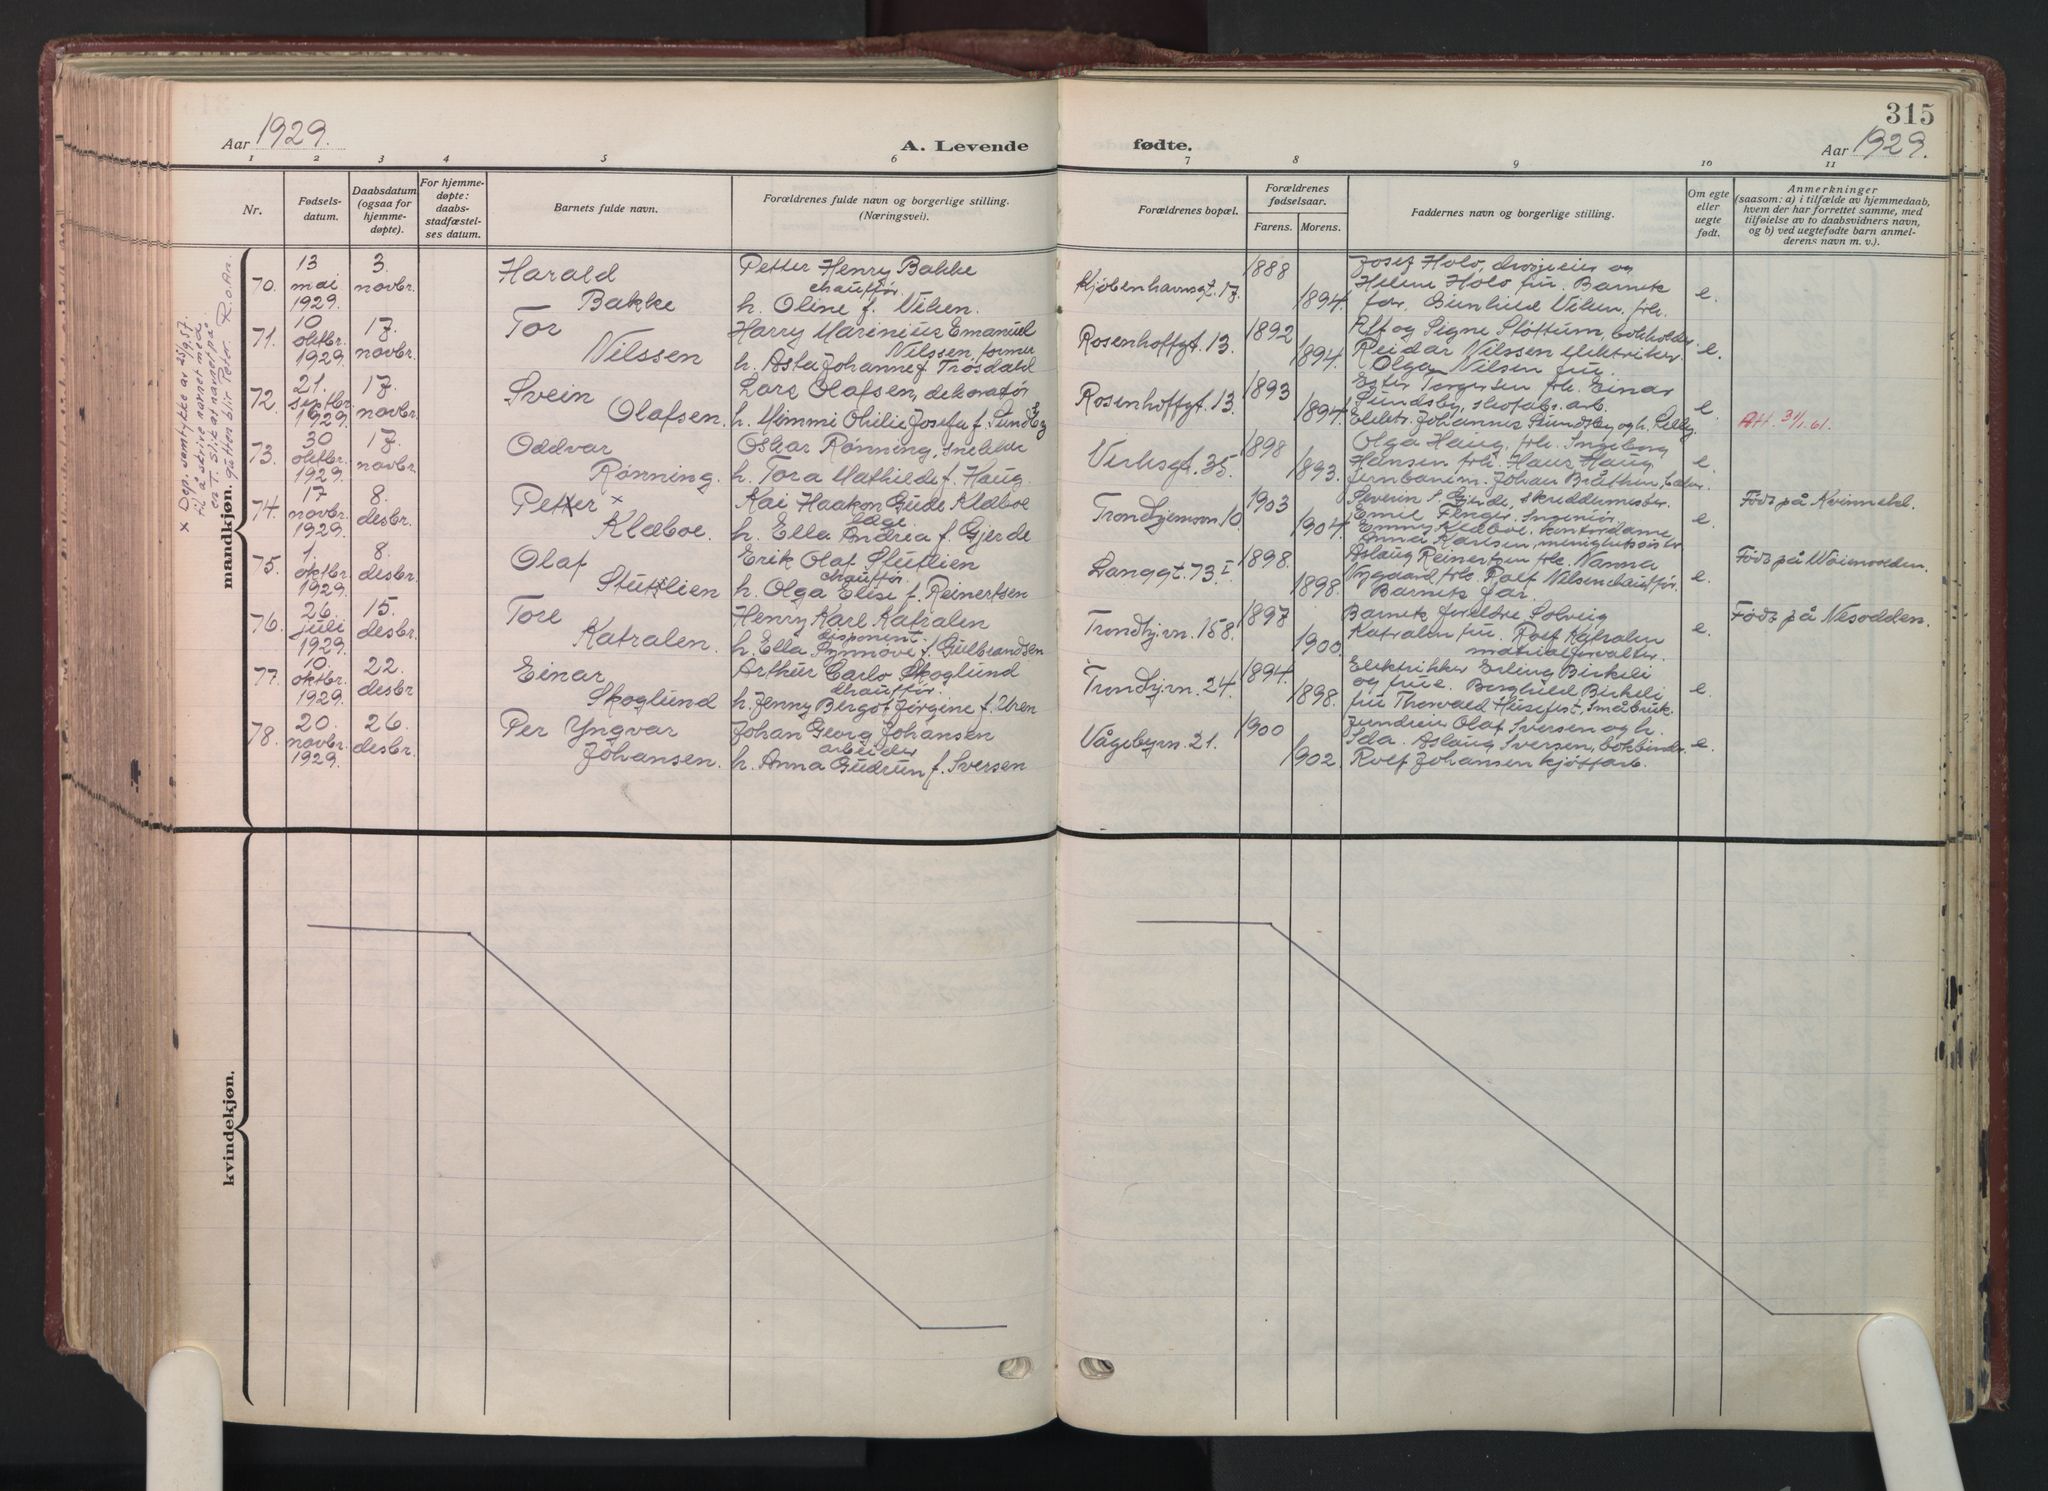 315
Aar 1929.
A. Levende fødte.
Aar 1929.
1 2 3 4 5 6 7 8 9 10 11
Nr.
Fødsels-
datum.
Daabsdatum
(ogsaa for
hjemme-
døpte).
For hjemme-
døpte:
daabs-
stadfæstel-
ses datum.
Barnets fulde navn.
Forældrenes fulde navn og borgerlige stilling.
(Næringsvei).
Forældrenes bopæl.
Forældrenes
fødselsaar.
Farens. Morens.
Faddernes navn og borgerlige stilling.
Om egte
eller
uegte
født.
Anmerkninger
(saasom: a) i tilfælde av hjemmedaab,
hvem der har forrettet samme, med
tilføielse av to daabsvidners navn,
og b) ved uegtefødte barn anmel-
derens navn m. v.).
x Dep. samtykke av 25/9.57.
til å skrive navnet med
en T. Slik at navnet på
gutten blir Peter. R.o.An.
mandkjøn.
70.
13
mai
1929.
3.
novbr.
Harald
Bakke
Petter Henry Bakke
chauffør
h. Oline f. Vilsen.
Kjøbenhavnsgt. 17.
1888
1894.
Josef Holo, drosjeeier og
Helene Holo fru. Barnets
far. Gunhild Vilsen, frk.
e.
71.
10
oktbr.
1929.
17.
novbr.
Tor
Nilssen
Harry Marinius Emanuel
Nilssen, former
h. Asta Johanne f. Trøsdahl
Rosenhoffgt. 13.
1892
1894.
Alf og Signe Støttum, bokholder
Reidar Nilssen elektriker.
Olga Nilsen fru.
e.
72.
21.
septbr.
1929
17
novbr.
Svein
Olafsen.
Lars Olafsen, dekoratør
h. Mimmi Othilie Josefa f. Sundby
Rosenhoffgt. 13.
1893
1894.
Ester Torgersen frk. Einar
Sundsby, skofabr. arb.
Elektr. Johannes Sundsby og h. Selby
e.
Att. 31/1.61.
73.
30
oktbr.
1929.
17
novbr.
Oddvar
Rønning.
Oskar Rønning, snekker
h. Tora Mathilde f. Haug.
Verksgt. 35.
1898
1893.
Olga Haug, frk. Ingeborg
Hansen frk. Hans Haug
jernbanem. Johan Bråthen,
e.
74.
17
novbr.
1929.
8.
desbr.
Petter x
Klæboe.
Kai Haakon Gude Klæboe
læge
h. Ella Andrea f. Gjerde
Trondhjemsvn. 10
1903
1904.
Severin S. Gjerde, skreddermester.
Emil Fenger, Ingeniør,
Emmy Klæboe, kontordame
Anna Karlsen, menighetssøster
e.
Født på Kvinnekl.
75.
1.
oktbr.
1929.
8.
desbr.
Olaf
Stutlien
Erik Olaf Stutlien
chauffør.
h. Olga Elise f. Reinertsen
Langgt. 73 I
1898.
1898.
Aslaug Reinertsen frk. Nanna
Nygaard frk. Rolf Nilsen chauffør.
Barnets far.
e.
Født på
76.
26.
juli
1929.
15.
desbr.
Tore
Katralen.
Henry Karl Katralen
disponent.
h. Ella Synnøve f. Gulbrandsen
Trondhj.vn. 158.
1897
1900
Barnets foreldre Solveig
Katralen fru. Rolf Katralen
matrialforvalter.
e.
Født på Nesodden.
77.
10.
oktbr.
1929.
22.
desbr
Einar
Skoglund
Arthur Carlo Skoglund
chauffør.
h. Jenny Birgot Jørgine f. Uren
Trondhj.vn. 24.
1894.
1898.
Elektrikker Erling Birkeli
og frue. Borghild Birkeli
fru Thorvald Husefest, småbruk.
e.
78.
20.
novbr.
1929.
26.
desbr.
Per Yngvar
Johansen.
Johan Georg Johansen
arbeider
h. Anna Gudrun f. Iversen
Vågebyrn. 21.
1900
1902.
Olaf Iversen og h.
Ida. Aslaug Iversen, bokbinder.
Rolf Johansen kjøttarb.
e.
kvindekjøn.